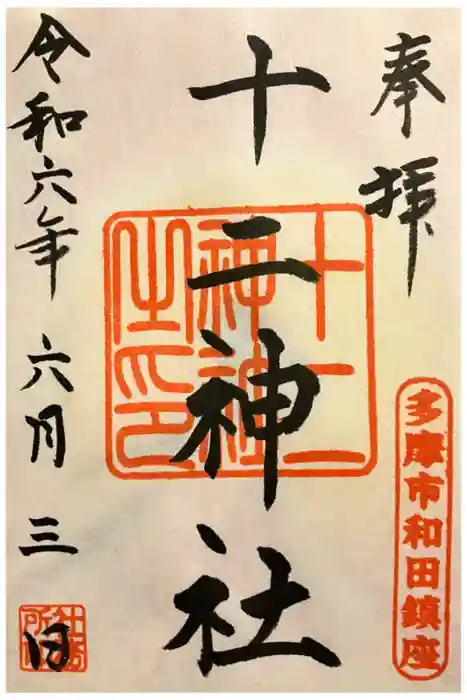 奉拝
多摩市和田鎮座
十二神社
十二神社之印
令和六年六月三日
社務所印